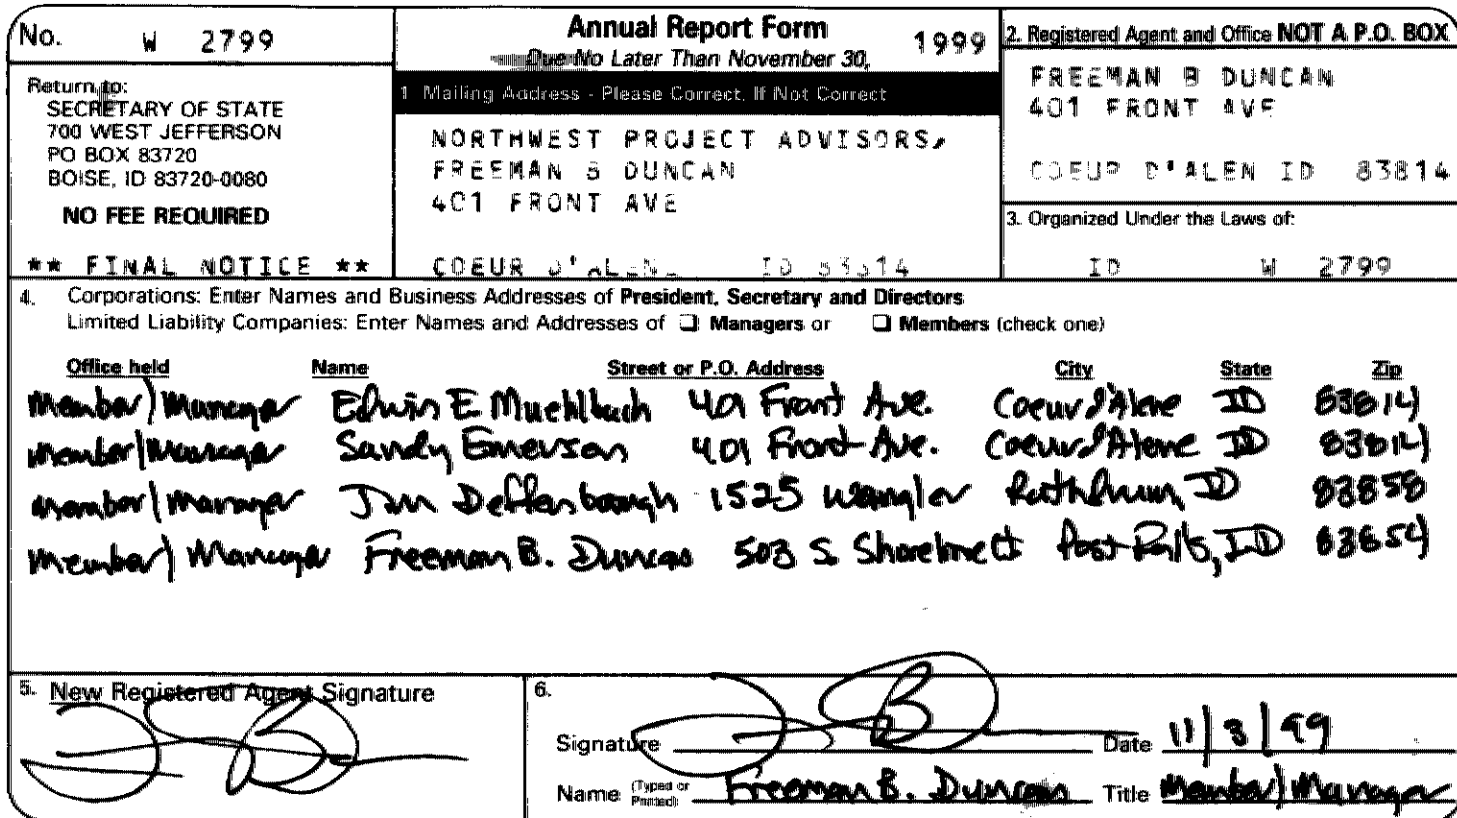 No. W 2799
Annual Report Form
Due No Later Than November 30, 1999
Return to:
SECRETARY OF STATE
700 WEST JEFFERSON
PO BOX 83720
BOISE, ID 83720-0080
NO FEE REQUIRED
** FINAL NOTICE **
1 Mailing Address - Please Correct, If Not Correct
NORTHWEST PROJECT ADVISORS,
FREEMAN B DUNCAN
401 FRONT AVE
COEUR D'ALENE ID 83814
2. Registered Agent and Office NOT A P.O. BOX
FREEMAN B DUNCAN
401 FRONT AVE
COEUR D'ALEN ID 83814
3. Organized Under the Laws of:
ID W 2799
4. Corporations: Enter Names and Business Addresses of President, Secretary and Directors
Limited Liability Companies: Enter Names and Addresses of ❑ Managers or ❑ Members (check one)
Office held Name Street or P.O. Address City State Zip
Member/Manager Edwin E Muehlbach 401 Front Ave. Coeur d'Alene ID 83814
Member/Manager Sandy Emerson 401 Front Ave. Coeur d'Alene ID 83814
Member/Manager Deffenbaugh 1525 Wrangler Rathdrum, ID 83858
Member/Manager Freeman B. Duncan 503 S. Post Falls, ID 83854
5. New Registered Agent Signature
6.
Signature Date 11/3/99
Name (Typed or Printed): Freeman B. Duncan Title Member/Manager